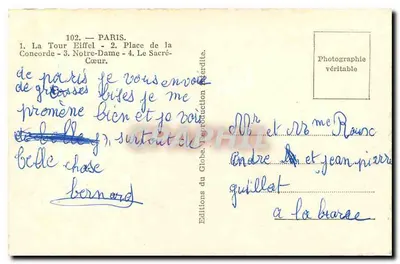 102. — PARIS.
1. La Tour Eiffel - 2. Place de la
Concorde - 3. Notre-Dame - 4. Le Sacré-
Cœur.
de paris je vous envoie
de grosses bises je me
promène bien et je vois
surtout de
belle chose
bernard
Editions du Globe. Reproduction interdite.
Photographie
véritable
Mr et Mme
andré et jean pierre
guillot
a la